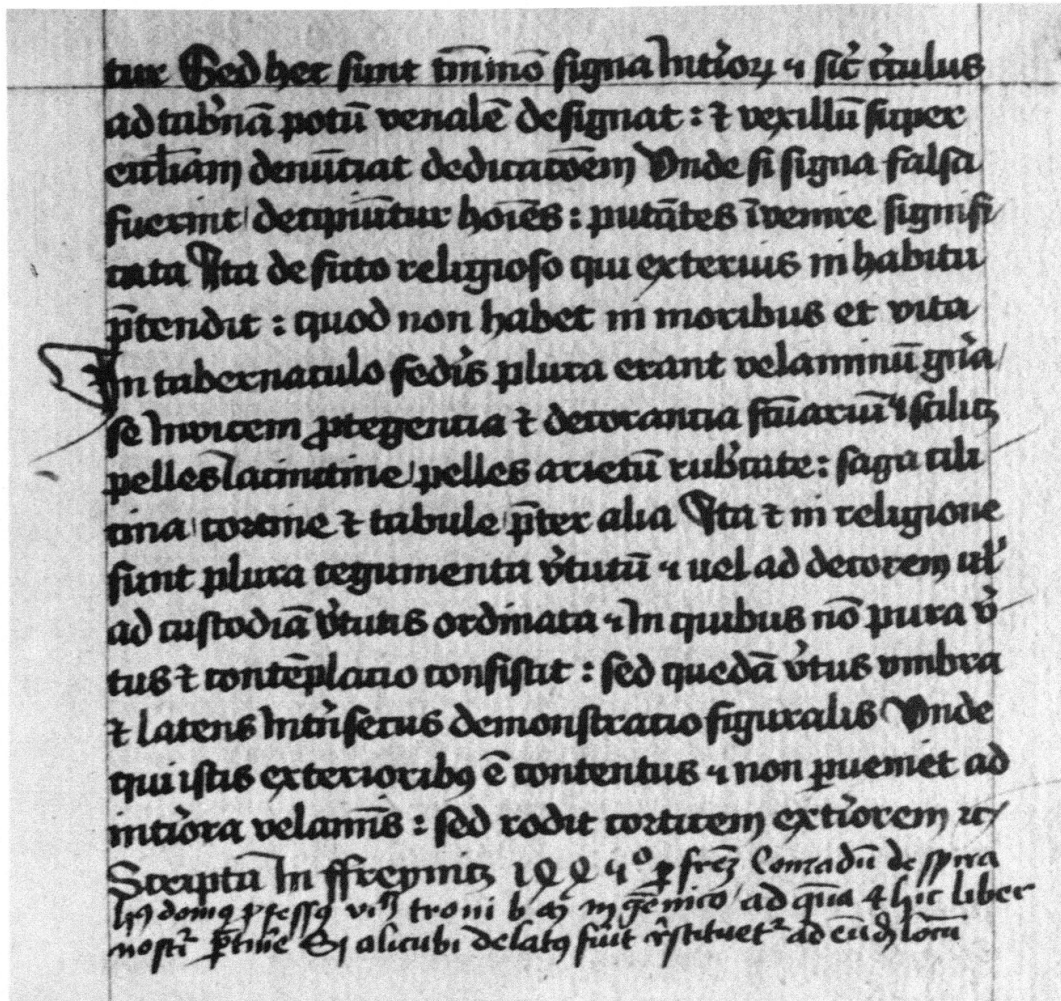 tur Sed hec sunt tm̄mō signa Int'ioꝝ ⁊ sic̄ c'culus
ad tab'nā potū venalē designat : ⁊ vexillū super
eccl'iam denūciat dedicacōem Vnde si signa falsa
fuerint decipiūtur hoīes : putātes īvenire signifi
cata Ita de ficto religioso qui exterius in habitu
p̄tendit : quod non habet in moribus et vita
In tabernaculo fed'is plura erant velaminū gn̄a
se Invicem ꝓtegentia ⁊ decorantia sc̄uariū scilicꝫ
pelles Iacinctine pelles arietū rub'cate : saga cili
cina cortine ⁊ tabule p̄ter alia Ita ⁊ in religione
sunt plura tegumenta v'tutū uel ad decorem ul'
ad custodiā v'tutis ordinata In quibus nō pura v'
tus ⁊ contēplacio consistit : sed quedā v'tus vmbra
⁊ latens Int'nsecus demonstratio figuralis Vnde
qui istis exterioribꝰ ē contentus non ꝑueniet ad
int'iora velamīs : sed rodit corticem ext'iorem ⁊c
Scriptū In ffrepnitꝫ ꝑ fr̄eꝫ Conradū de spira
hꝰ domꝰ ꝓfessꝰ troni b ad quā hic liber
nost' p̄tinꝫ Si alicubi delatꝰ fu'it r̄stituet' ad eūdꝫ locū